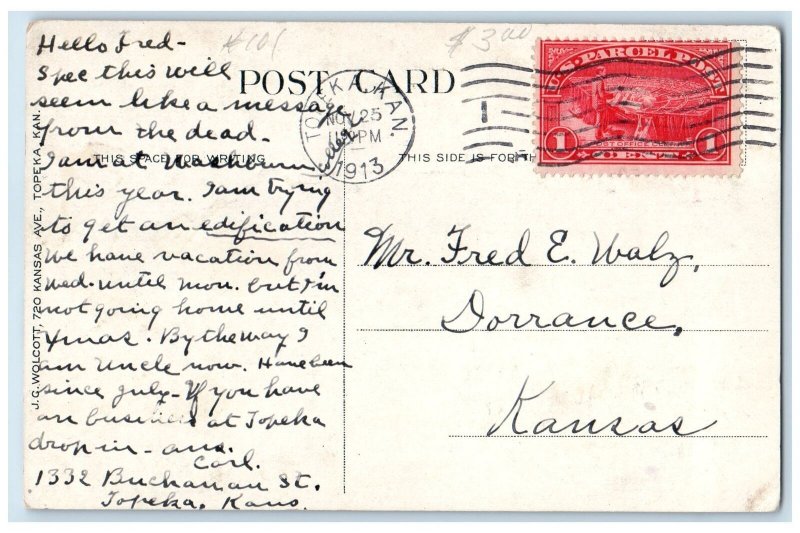 #101
$3.00
POST CARD
TOPEKA, KAN.
NOV 25
PM
1913
U.S. PARCEL POST
1
1
POST OFFICE CLERK
CENT
THIS SPACE FOR WRITING
THIS SIDE IS FOR TH
J.C. WOLCOTT, 720 KANSAS AVE., TOPEKA, KAN.
Hello Fred-
Spec this will
seem like a message
from the dead-
I am at Washburn College
this year. I am trying
to get an edification
We have vacation from
Wed. until Mon. but I'm
not going home until
Xmas. By the way I
am Uncle now. Have been
since July- If you have
an business at Topeka
drop in- ans.
Carl.
1332 Buchanan St.
Topeka, Kans.
Mr. Fred E. Walz,
Dorrance,
Kansas